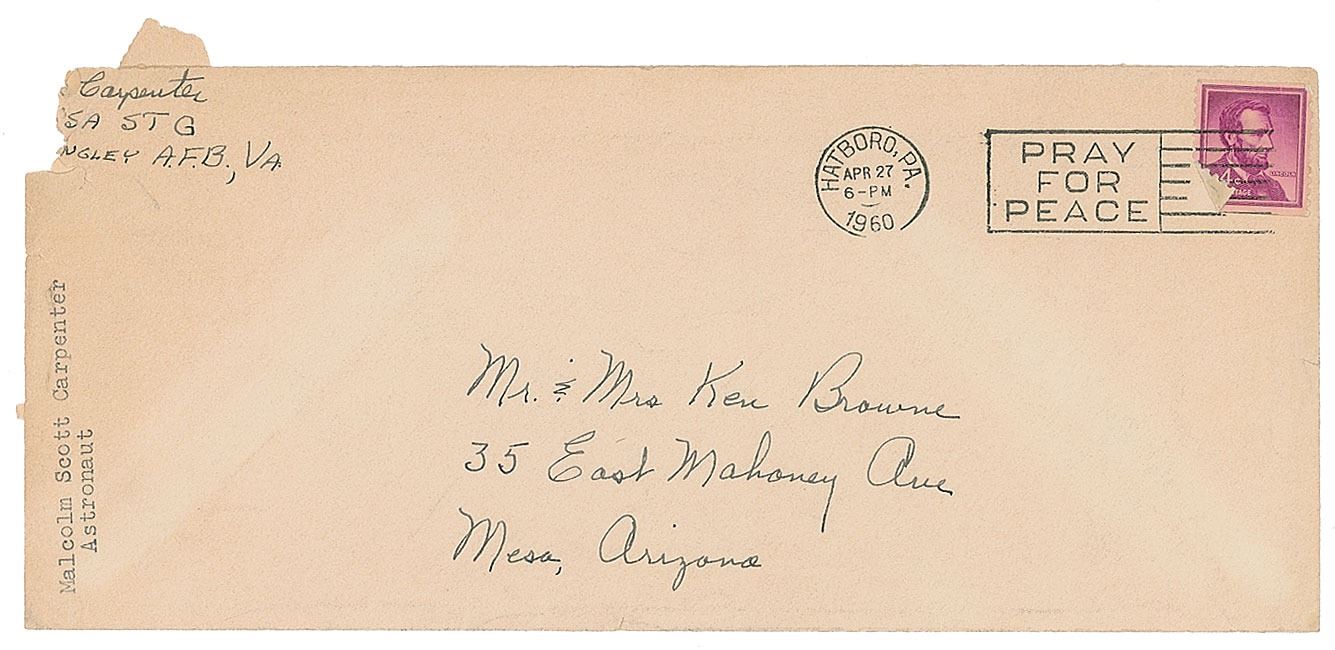 Carpenter
SA STG
NGLEY A.F.B., VA
HATBORO, PA.
APR 27
6-PM
1960
PRAY
FOR
PEACE
4¢
LINCOLN
Malcolm Scott Carpenter
Astronaut
Mr. & Mrs Ken Browne
35 East Mahoney Ave
Mesa, Arizona